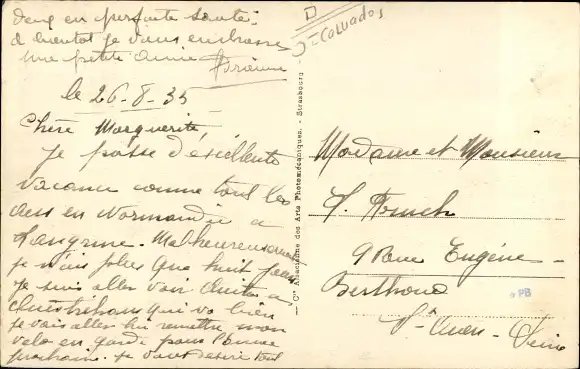 le 26-8-35
Chère Marguerite,
je passe d'excellente
vacance comme tout les
ans en Normandie a
Langrune. Malheureusement
je n'ais plus que huit jours
je suis aller voir
qui va bien
je vais aller lui remettre mon
velo en garde pour l'année
prochaine. je vous désire tout
deux en perfaite santé.
a bientot je vous embrasse
une petite amie
D=Calvados
— Cie Alsacienne des Arts Photomécaniques. - Strasbourg —
Madame et Monsieur
9 Rue Eugéne -
Berthoud
St Ouen - Seine
PB